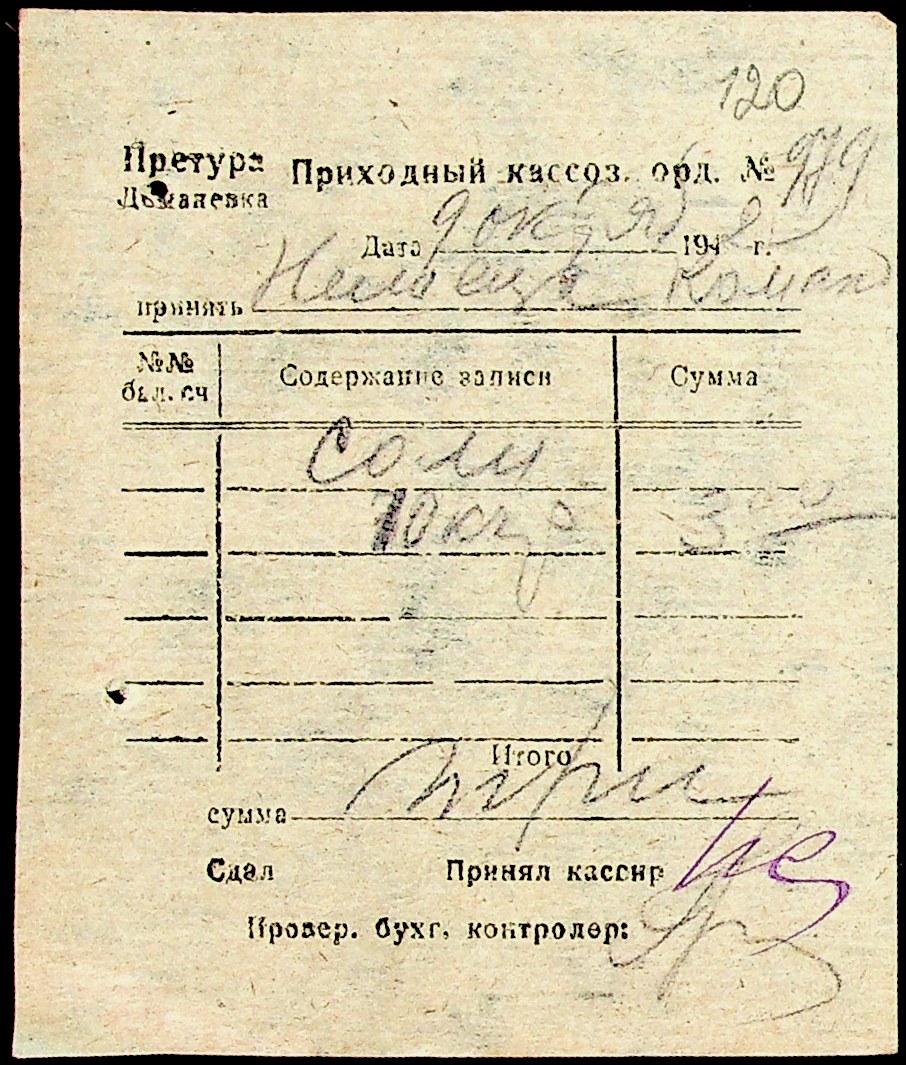 120
Претура Приходный кассов. орд. № 979
Доманевка
Дата 9 октяб 1942 г.
принять Немецка Коман
№№ бал. сч Содержание записи Сумма
Соли
10 кгр 3 00
Итого
сумма три
Сдал Принял кассир
Провер. бухг. контролер: